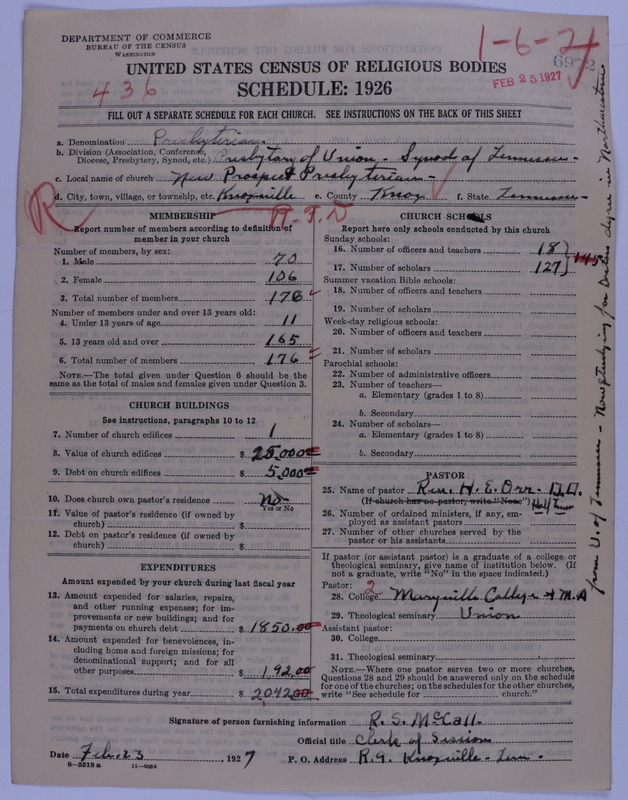 DEPARTMENT OF COMMERCE
BUREAU OF THE CENSUS
WASHINGTON
1-6-2
FEB 25 1927
UNITED STATES CENSUS OF RELIGIOUS BODIES
436
SCHEDULE: 1926
FILL OUT A SEPARATE SCHEDULE FOR EACH CHURCH. SEE INSTRUCTIONS ON THE BACK OF THIS SHEET
a. Denomination Presbyterian
b. Division (Association, Conference,
Diocese, Presbytery, Synod, etc.) Presbytary of Union - Synod of Tennessee -
c. Local name of church New Prospect Presbyterian -
d. City, town, village, or township, etc. Knoxville e. County Knox f. State Tennessee -
R
R.F.D
MEMBERSHIP
Report number of members according to definition of
member in your church
Number of members, by sex:
1. Male 70
2. Female 106
3. Total number of members 176
Number of members under and over 13 years old:
4. Under 13 years of age 11
5. 13 years old and over 165
6. Total number of members 176
NOTE.—The total given under Question 6 should be the
same as the total of males and females given under Question 3.
CHURCH BUILDINGS
See instructions, paragraphs 10 to 12
7. Number of church edifices 1
8. Value of church edifices $ 25,000
9. Debt on church edifices $ 5,000
10. Does church own pastor's residence No
Yes or No
11. Value of pastor's residence (if owned by
church) $
12. Debt on pastor's residence (if owned by
church) $
EXPENDITURES
Amount expended by your church during last fiscal year
13. Amount expended for salaries, repairs,
and other running expenses; for im-
provements or new buildings; and for
payments on church debt $ 1850.00
14. Amount expended for benevolences, in-
cluding home and foreign missions; for
denominational support; and for all
other purposes $ 192.00
15. Total expenditures during year $ 2042.00
CHURCH SCHOOLS
Report here only schools conducted by this church
Sunday schools:
16. Number of officers and teachers 18
17. Number of scholars 127
145
Summer vacation Bible schools:
18. Number of officers and teachers
19. Number of scholars
Week-day religious schools:
20. Number of officers and teachers
21. Number of scholars
Parochial schools:
22. Number of administrative officers
23. Number of teachers—
a. Elementary (grades 1 to 8)
b. Secondary
24. Number of scholars—
a. Elementary (grades 1 to 8)
b. Secondary
PASTOR
25. Name of pastor Rev. H. E. Orr. D.D.
(If church has no pastor, write "None") Half Time
26. Number of ordained ministers, if any, em-
ployed as assistant pastors
27. Number of other churches served by the
pastor or his assistants
If pastor (or assistant pastor) is a graduate of a college or
theological seminary, give name of institution below. (If
not a graduate, write "No" in the space indicated.)
Pastor: 2
28. College Maryville College & M.A
29. Theological seminary Union
Assistant pastor:
30. College
31. Theological seminary
NOTE.—Where one pastor serves two or more churches,
Questions 28 and 29 should be answered only on the schedule
for one of the churches; on the schedules for the other churches,
write "See schedule for church."
from U. of Tennessee - Now studying for Doctors degree in Northwestern
Signature of person furnishing information R. S. McCall
Official title Clerk of Session
Date Feb. 23, 1927 P. O. Address R.9. Knoxville - Tenn -
8-5518 a 11-9064